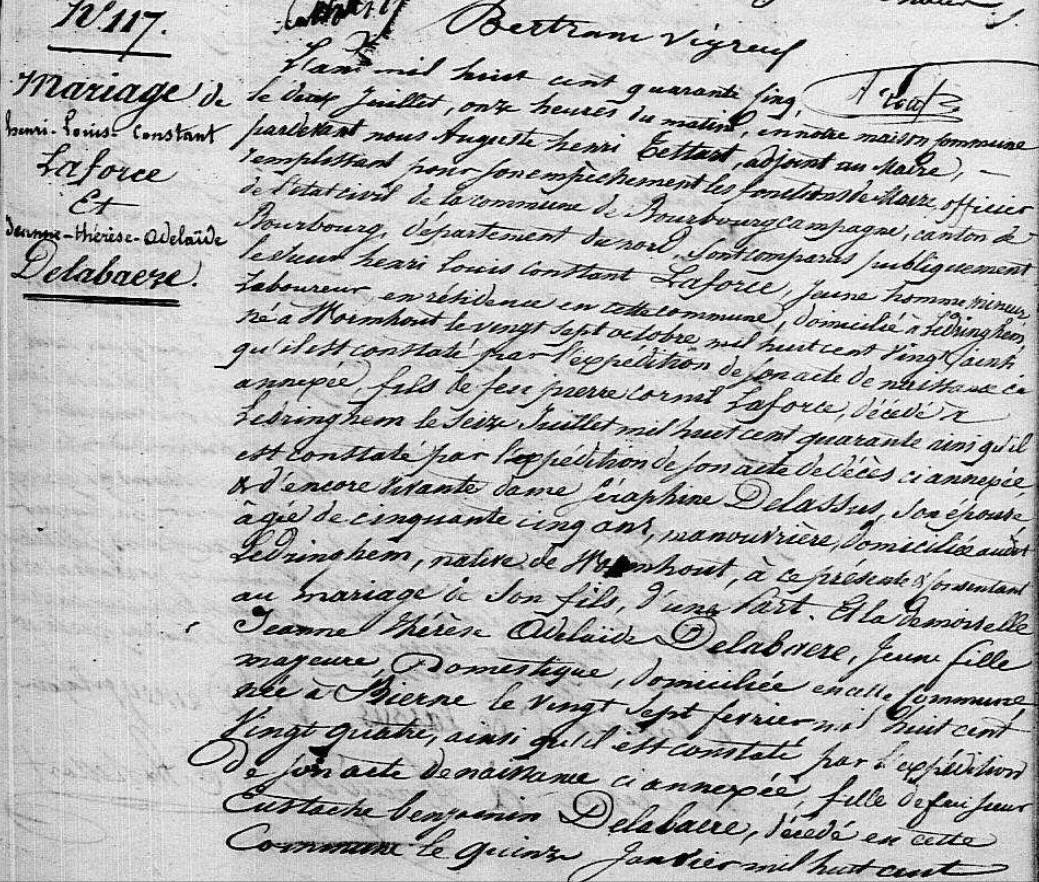 N° 117.
Mariage de
henri-Louis-Constant
Laforce
Et
Jeanne-thérèse-Adelaïde
Delabaere.
Bertram Vigreux
L'an mil huit cent quarante cinq,
le deux Juillet, onze heures du matin, en notre maison commune
pardevant nous Auguste henri Tettart, adjoint au Maire,
remplissant pour son empêchement les fonctions de Maire, officier
de l'état civil de la commune de Bourbourgcampagne, canton de
Bourbourg, département du nord, sont comparus publiquement
le sieur henri Louis Constant Laforce, Jeune homme mineur
Laboureur en résidence en cette commune, domicilié à Ledringhem,
né à Wormhout le vingt sept octobre mil huit cent vingt
qu'il est constaté par l'expédition de son acte de naissance ci
annexée, fils de feu pierre cornil Laforce, décédé à
Ledringhem le Seize Juillet mil huit cent quarante ainsi qu'il
est constaté par l'expédition de son acte de décès ci annexée
& d'encore vivante dame Séraphine Delassus, son épouse
âgée de cinquante cinq ans, manouvrière, domiciliée audit
Ledringhem, native de Wormhout, à ce présente & consentant
au mariage de son fils, d'une Part. Et la demoiselle
Jeanne thérèse Adelaïde Delabaere, Jeune fille
majeure, Domestique, domiciliée en cette Commune
née à Bierne le vingt sept fevrier mil huit cent
Vingt quatre, ainsi qu'il est constaté par l'expédition
de son acte de naissance ci annexée, fille de feu sieur
Eustache benjamin Delabaere, décédé en cette
Commune le quinze Janvier mil huit cent